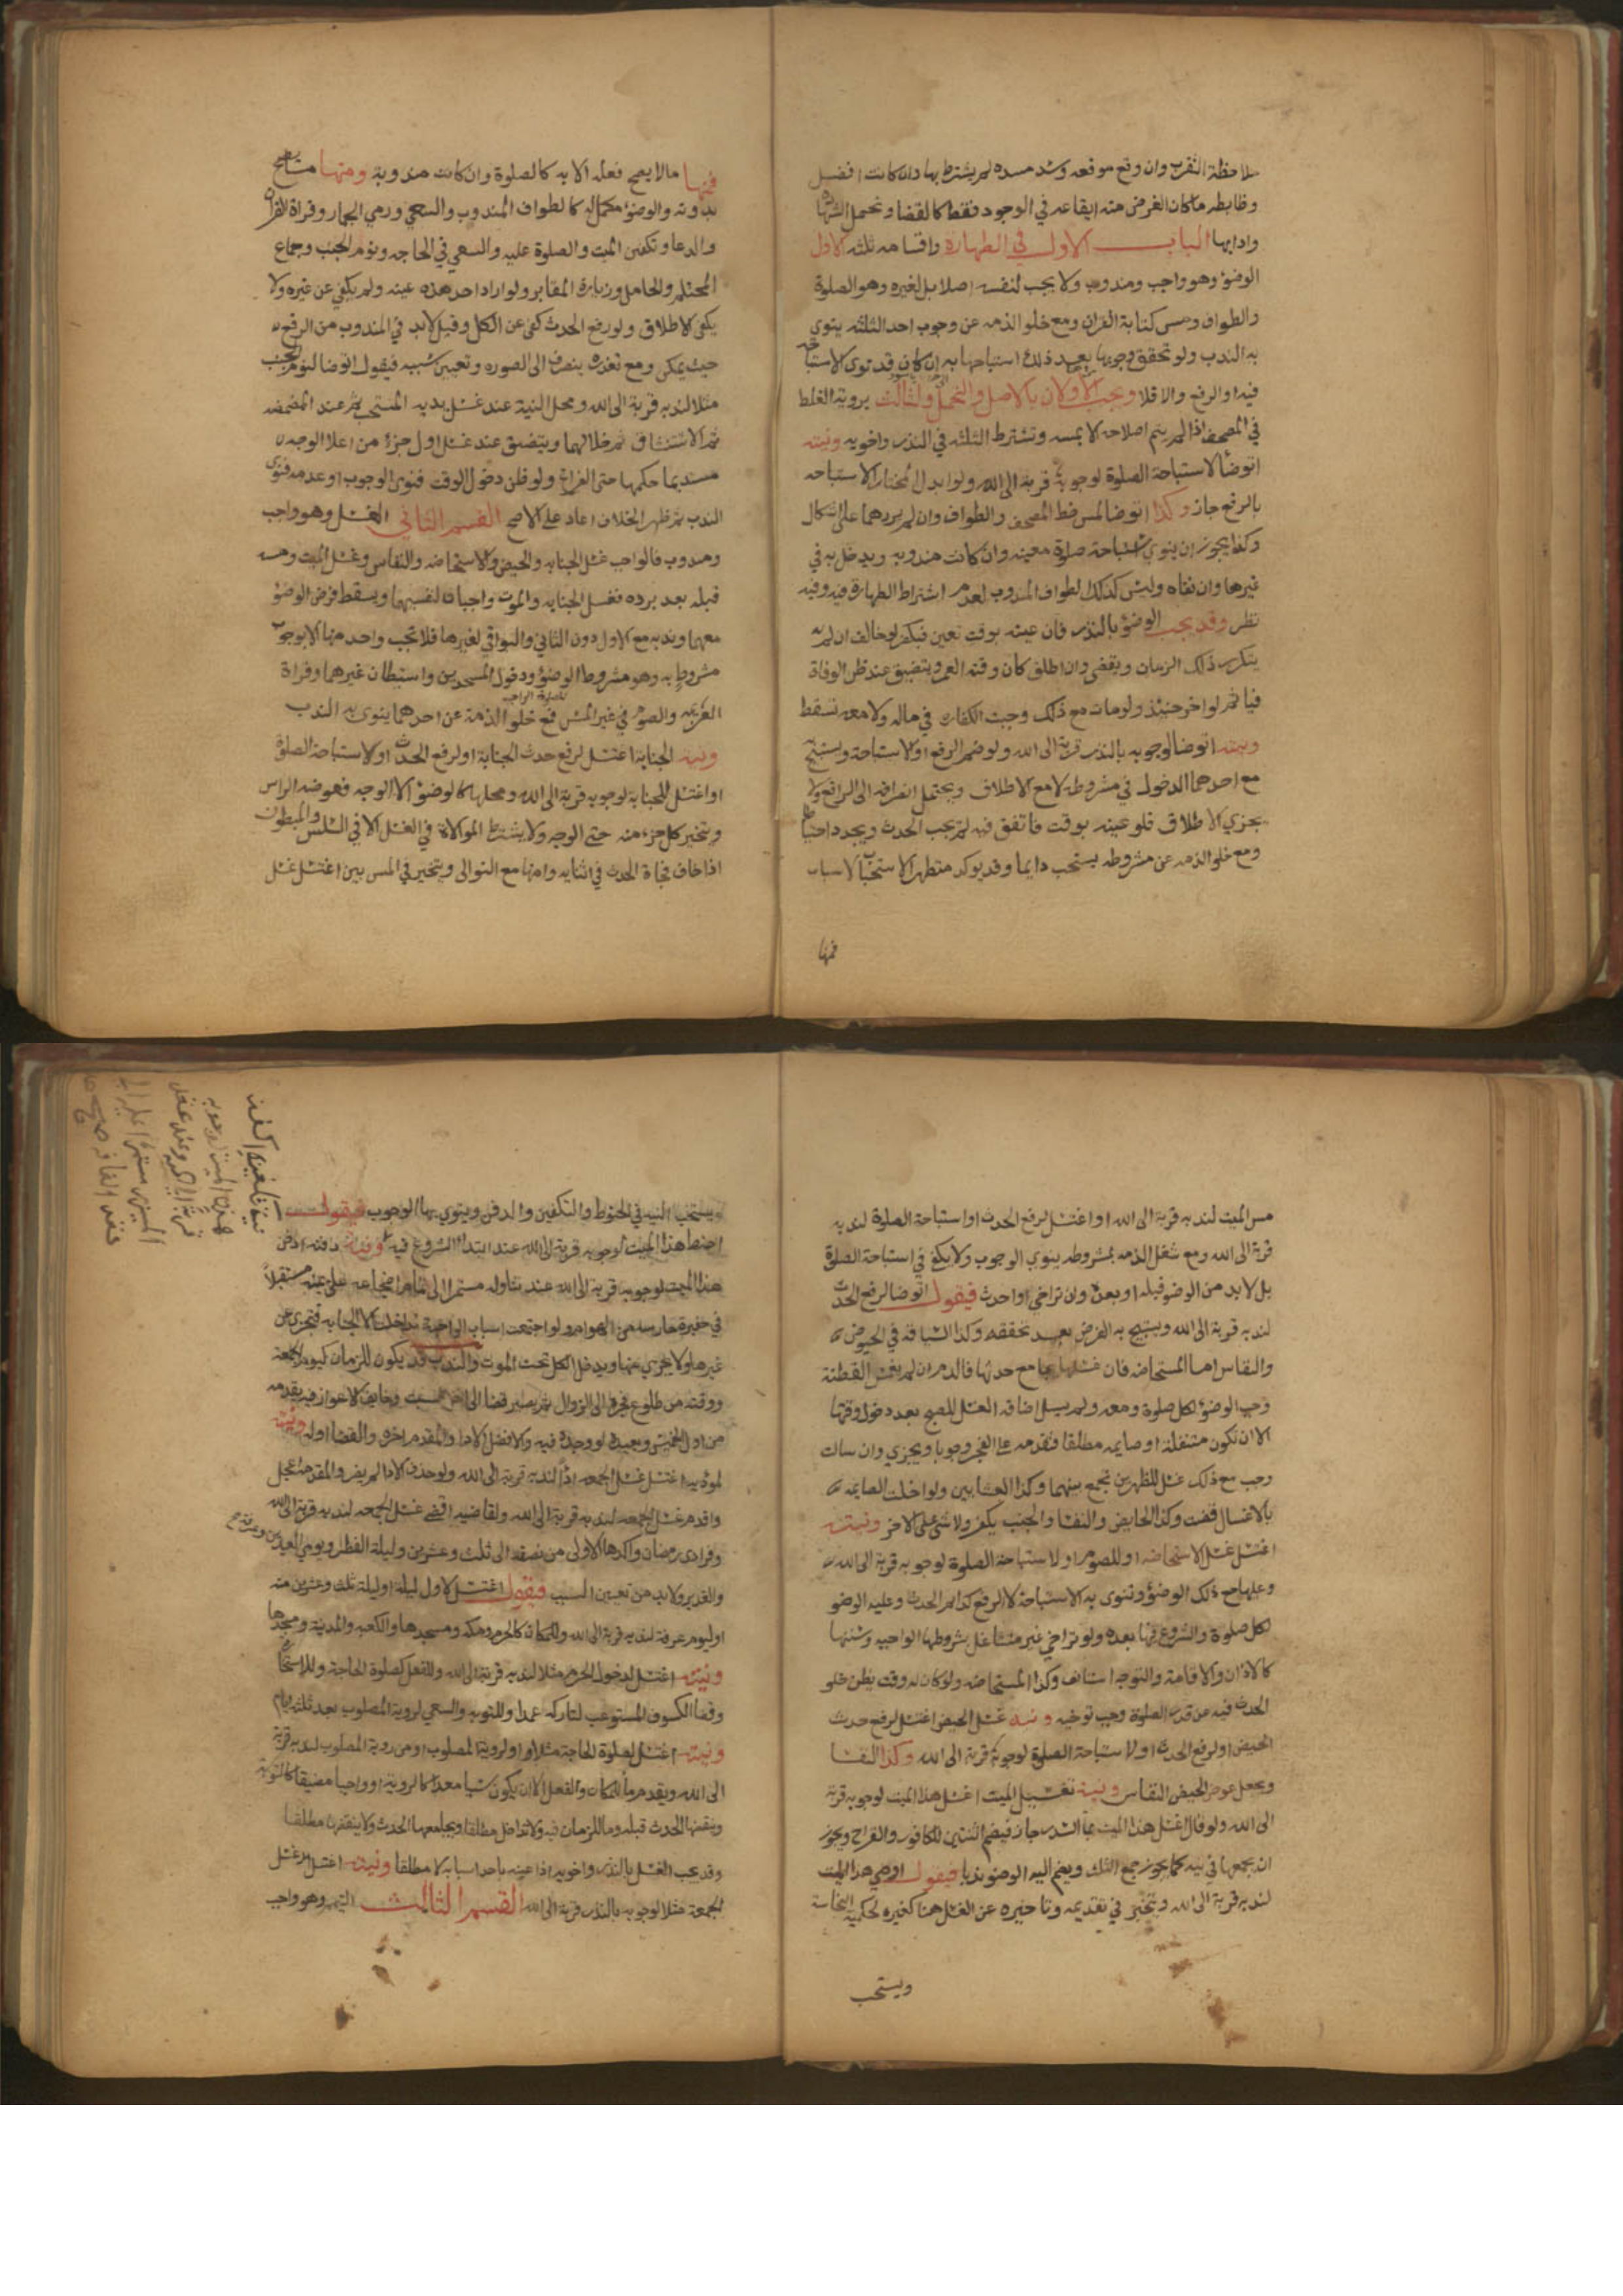 ملاحظة التقرب وان وقع موقعه وسد مسده لم يشترط بها وان كانت افضل
وضابطه ماكان الغرض منه ايقاعه في الوجود فقط كالقضا وتحمل الشهادة
وادايها الباب الاول في الطهارة واقسامه ثلثه الاول
الوضوء وهو واجب ومندوب ولا يجب لنفسه اصلا بل لغيره وهو الصلوة
والطواف ومس كتابة القران ومع خلو الذمه عن وجوب احد الثلثه ينوي
به الندب ولو تحقق وجوبها بعد ذلك استباحها به ان كان قد نوى الاستباحه
فيه او الرفع والا فلا ويجب الاولان بالاصل والتحمل والثالث بروية الغلط
في المصحف اذا لم يتم اصلاحه الا بمسه وتشترط الثلثه في النذر واخويه ونيته
اتوضأ لاستباحة الصلوة لوجوبه قربة الى الله ولو ابدل المختار الاستباحه
بالرفع جاز وكذا اتوضا لمس خط المصحف والطواف وان لم يردهما على اشكال
وكذا يجوز ان ينوي استباحة صلوة معينه وان كانت مندوبه ويدخل به في
غيرها وان نفاه وليس كذلك لطواف المندوب لعدم اشتراط الطهارة فيه وفيه
نظر وقد يجب الوضوء بالنذر فان عينه بوقت تعين فيكفر لو خالف ان لم
يتكرر ذلك الزمان ويقضي وان اطلق كان وقته العمر ويتضيق عند ظن الوفاة
فياثم لو اخر حينئذ ولو مات مع ذلك وجبت الكفارة في ماله ولا معه تسقط
ونيته اتوضا لوجوبه بالنذر قربة الى الله ولو ضم الرفع او الاستباحة ويستبيح
مع احدهما الدخول في مشروطه لا مع الاطلاق ويحتمل انصرافه الى الرافع ولا
يجزي الاطلاق فلو عينه بوقت فاتفق فيه لم يجب الحدث ويجدد احتياطا
ومع خلو الذمه عن مشروطه يستحب دايما وقد يوكد متطهرا لاستحباب الاسباب
فمنها
فمنها مالا يصح فعله الا به كالصلوة وان كانت مندوبة ومنها ما يصح
بدونه والوضوء مكمل له كالطواف المندوب والسعي ورمي الجمار وقراة القران
والدعا وتكفين الميت والصلوة عليه والسعي في الحاجه ونوم الجنب وجماع
المحتلم والحامل وزيارة المقابر ولو اراد احد هذه عينه ولم يكفي عن غيره ولا
يكفي الاطلاق ولو رفع الحدث كفى عن الكل وقيل لابد في المندوب من الرفع
حيث يمكن ومع تعذره ينصرف الى الصوره وتعيين سببه فيقول اتوضا لنوم الجنب
مثلا لندبه قربة الى الله ومحل النية عند غسل يديه المستحب ثم عند المضمضه
ثم الاستنشاق ثم خلالهما ويتضيق عند غسل اول جزء من اعلا الوجه
مستديما حكمها حتى الفراغ ولو ظن دخول الوقت فنوى الوجوب او عدمه فنوى
الندب ثم ظهر الخلاف اعاد على الاصح القسم الثاني الغسل وهو واجب
ومندوب فالواجب غسل الجنابه والحيض والاستحاضه والنفاس وغسل الميت ومسه
قبله بعد برده فغسل الجنابه والموت واجبان لنفسيهما ويسقط فرض الوضوء
معهما وندبه مع الاول دون الثاني والبواقي لغيرها فلا تجب واحد منها الا بوجوب
مشروط به وهو مشروط الوضوء ودخول المسجدين واستيطان غيرهما وقراة
العزيمه والصوم في غير المس فمع خلو الذمة عن احدهما ينوي به الندب
ونية الجنابة اغتسل لرفع حدث الجنابة او لرفع الحدث او لاستباحة الصلوة
او اغتسل للجنابة لوجوبه قربة الى الله ومحلها كالوضوء الا الوجه فعوضه الراس
ويتخير كل جزء منه حتى الوجه ولا يشترط الموالاة في الغسل الا في السلس والمبطون
اذا خاف فجاة الحدث في اثنايه وامنها مع التوالى ويتخير في المس بين اغتسل غسل
مس الميت لندبه قربة الى الله او اغتسل لرفع الحدث او استباحة الصلوة لندبه
قربة الى الله ومع شغل الذمه بمشروطه ينوي الوجوب ولا يكفي في استباحة الصلوة
بل لا بد من الوضو قبله او بعده وان تراخى او احدث فيقول اتوضا لرفع الحدث
لندبه قربة الى الله ويستبيح به الفرض بعد تحققه وكذا الشباقه في الحيض
والنفاس اما المستحاضه فان غسلها يجامع حدثها فالدم ان لم يغمس القطنة
وجب الوضوء لكل صلوة ومعه ولم يسل اضافه الغسل للصبح بعد دخول وقتها
الا ان تكون متنفلة او صايمه مطلقا فتقدمه على الفجر وجوبا ويجزي وان سالت
وجب مع ذلك غسل للظهرين تجمع بينهما وكذا العشايين ولو اخلت الصايمه
بالاغسال قضت وكذا الحايض والنفسا والجنب يكفر ولا شي على الاخر ونيته
اغتسل غسل الاستحاضه او للصوم او لاستباحة الصلوة لوجوبه قربة الى الله
وعليها مع ذلك الوضوء وتنوى به الاستباحة لا الرفع كدايم الحدث وعليه الوضو
لكل صلوة والشروع فيها بعده ولو تراخى غير متشاغل بشروطها الواجبه وسننها
كالاذان والاقامة والتوجه استانف وكذا المستحاضه ولو كان له وقت يظن خلو
الحدث فيه عن قدر الصلوة وجب توخيه ونية غسل الحيض اغتسل لرفع حدث
الحيض او لرفع الحدث او لاستباحة الصلوة لوجوبه قربة الى الله وكذا النفسا
ويجعل عوض الحيض النفاس ونية تغسيل الميت اغسل هذا الميت لوجوبه قربة
الى الله ولو قال اغسل هذا الميت بما السدر جاز فيضم اثنتين للكافور والقراح ويجوز
ان يجمعها في نية كما يجوز جمع الثلث ويضم اليه الوضو ندبا فيقول اوضي هذا الميت
لندبه قربة الى الله ويتخير في تقديمه وتاخيره عن الغسل هنا كغيره لحكمية النجاسة
ويستحب
ويستحب النيه في الحنوط والتكفين والدفن وينوي بها الوجوب فيقول
احنط هذا الميت لوجوبه قربة الى الله عند ابتدا الشروع فيه ونية دفنه ادفن
هذا الميت لوجوبه قربة الى الله عند تناوله مستمرا الى تمام اضجاعه على يمينه مستقبلا
في حفيرة حارسه من الهوام ولو اجتمعت اسباب الواجبة تداخلت الا الجنابه فتجزي عن
غيرها ولا يجزي عنها ويدخل الكل تحت الموت والندب قد يكون للزمان كيوم الجمعة
ووقته من طلوع فجره الى الزوال ثم يصير قضا الى اخر السبت وخايف الاعواز فيه يقدمه
من اول الخميس ويعيده لو وجده فيه والافضل الادا والمقدم اخره والقضا اوله ونيته
لموديه اغتسل غسل الجمعه اداً لندبه قربة الى الله ولو حذف الادا لم يضر والمقدم اعجل
واقدم غسل الجمعه لندبه قربة الى الله ولقاضيه اقضي غسل الجمعه لندبه قربة الى الله
وفرادى رمضان واكدها الاولى من نصفه الى ثلث وعشرين وليلة الفطر ويومي العيدين وعرفة
والغدير ولا بد من تعيين السبب فيقول اغتسل لاول ليلة او ليلة ثلث وعشرين منه
او ليوم عرفة لندبه قربة الى الله وللمكان كالحرم ومكه ومسجدها والكعبه والمدينة ومسجدها
ونيته اغتسل لدخول الحرم مثلا لندبه قربة الى الله وللفعل كصلوة الحاجة وللاستخارة
وقضا الكسوف المستوعب لتاركه عمدا وللتوبه والسعي لروية المصلوب بعد ثلثه ايام
ونيته اغتسل لصلوة الحاجة مثلا او لروية المصلوب او من روية المصلوب لندبه قربة
الى الله ويقدم ما للمكان والفعل الا ان يكون سببا معدا كالروية او واجبا مضيقا كالتوبة
وينقضها الحدث قبله وما للزمان فيه ولا تداخل مطلقا ويجامعها الحدث ولا ينقضها مطلقا
وقد يجب الغسل بالنذر واخويه اذا عينه باحد اسبابه لا مطلقا ونيته اغتسل غسل
الجمعة مثلا لوجوبه بالنذر قربة الى الله القسم الثالث التيمم وهو واجب